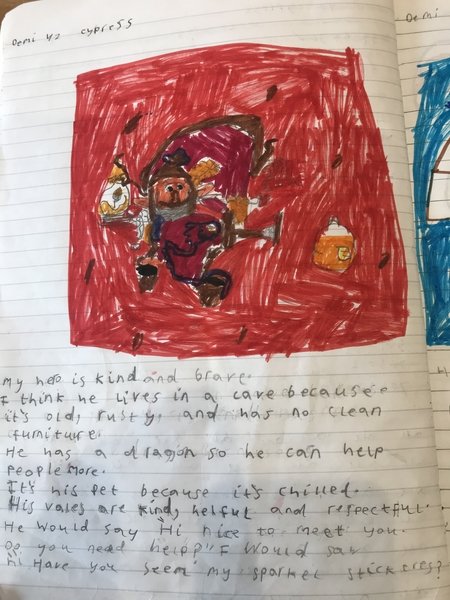 Demi Y2 cypress
Demi
My hero is kind and brave.
I think he lives in a cave because
it's old, rusty, and has no clean
furniture.
He has a dragon so he can help
people more.
It's his pet because it's chilled.
His vales are kind, helful and respectful.
He would say "Hi nice to meet you.
Do you need help?" I would say
Hi Have you seem my sparkel stickeres?